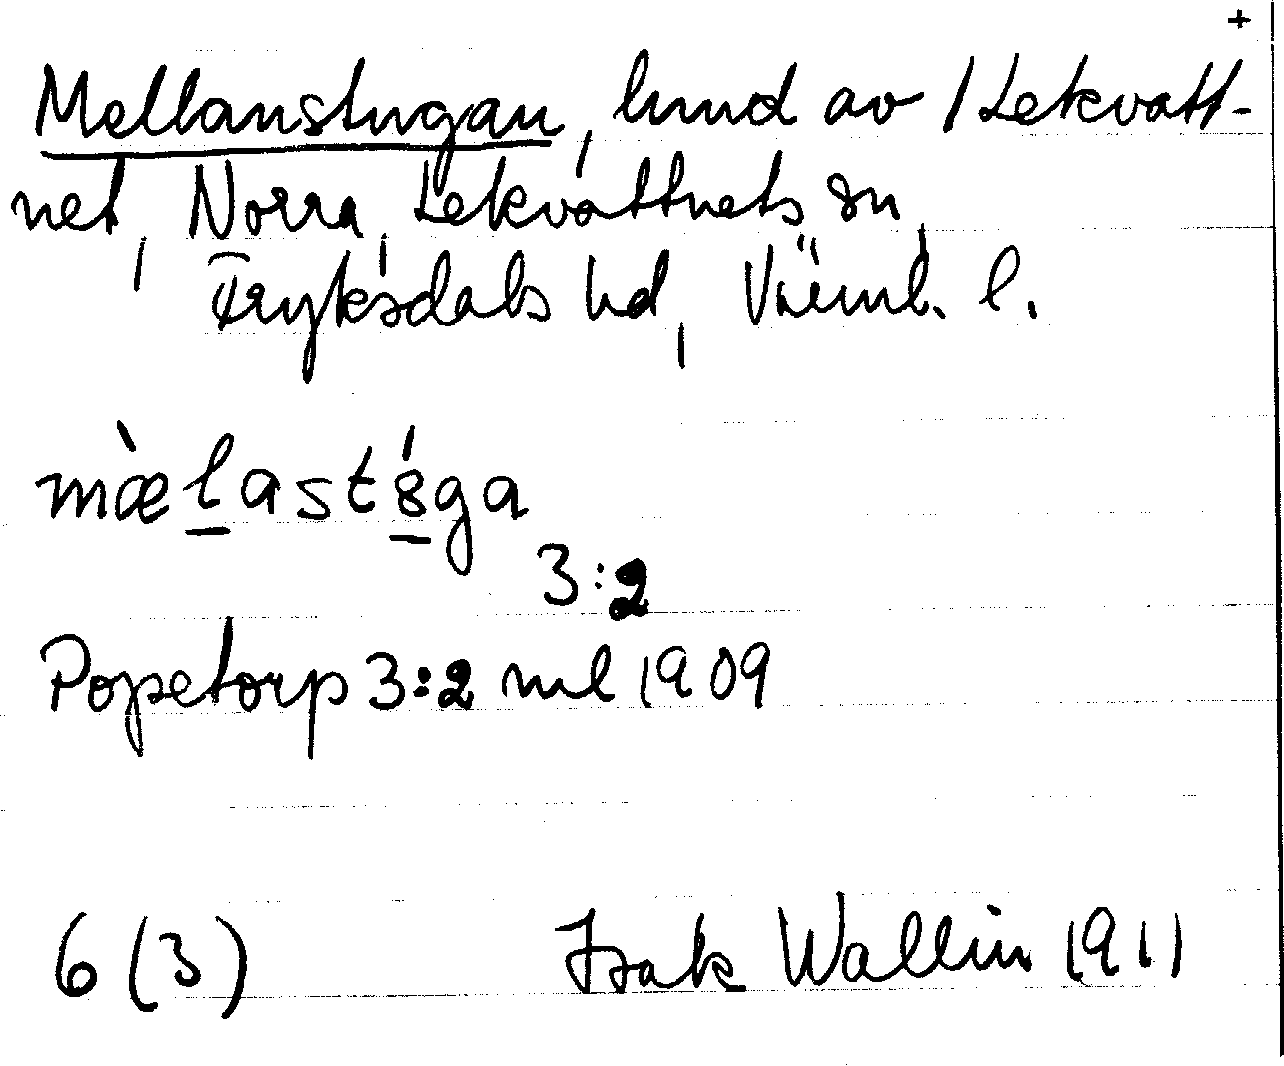 +
Mellanstugan, lmnd av 1 Lekvatt-
net, Norra, Lekvattnets sn,
Fryksdals hd, Värml. l.
mæ̀l̠astó̠ga
3:2
Popetorp 3:2 ml 1909
6 (3) Isak Wallin 1911